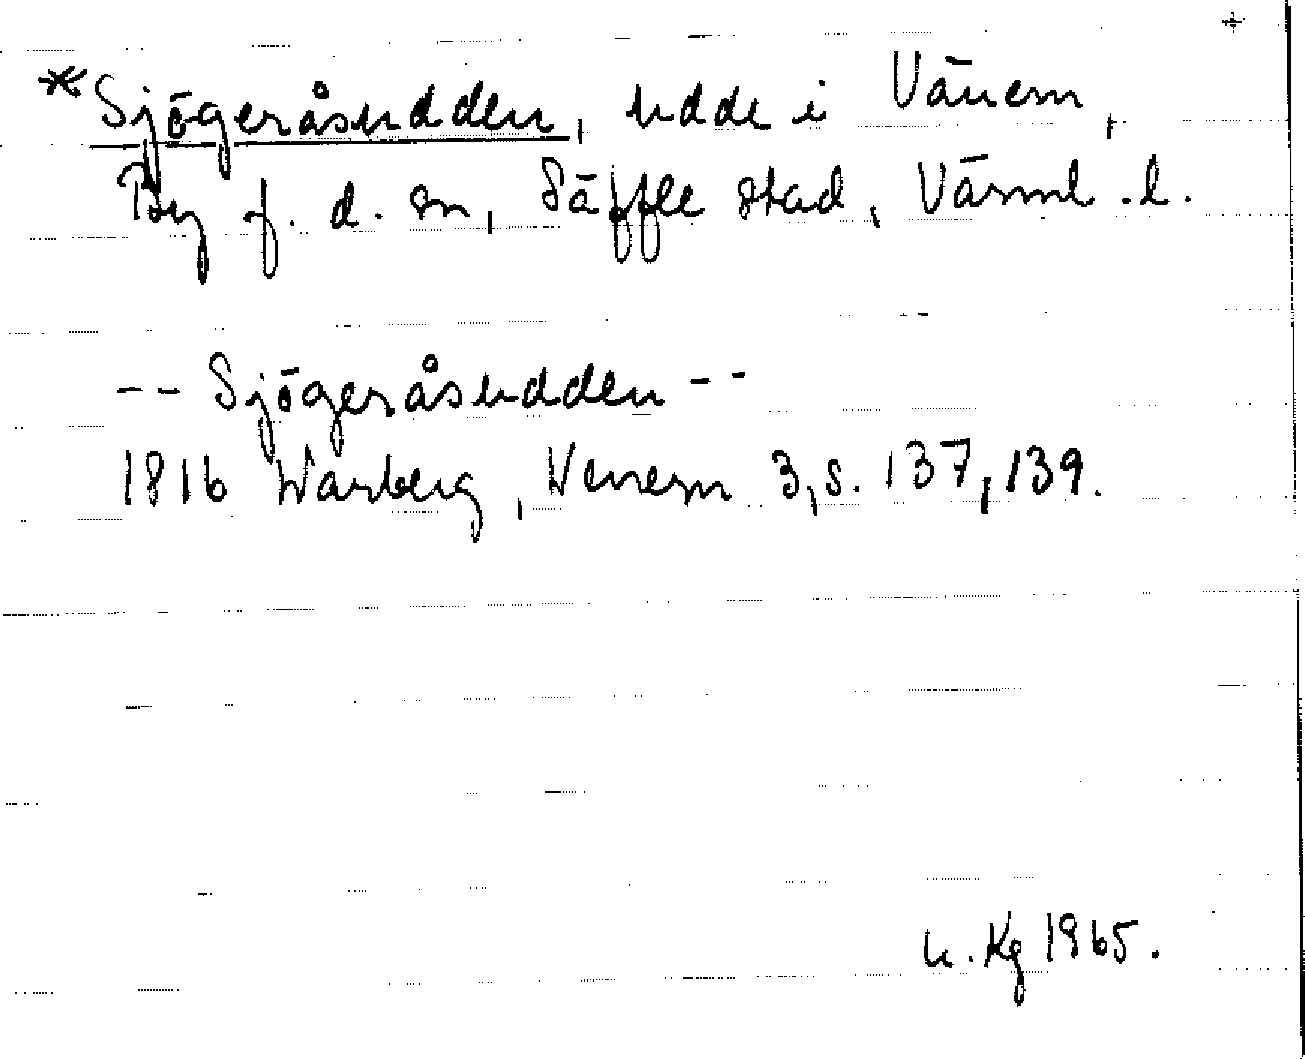 *Sjögeråsudden, udde i Vänern,
By f. d. sn, Säffle stad, Värml. l.
-- Sjögeråsudden --
1816 Warberg, Wenern 3, s. 137, 139.
u. Kg 1965.